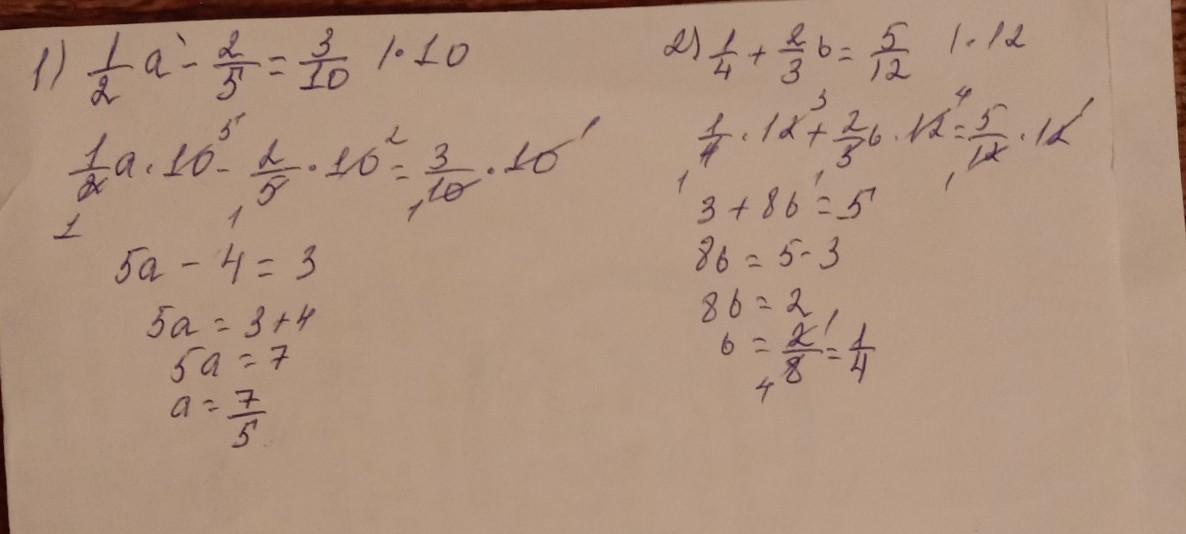 1) 1/2 a - 2/5 = 3/10 | · 10
1/2 a · 10 5 - 2/5 · 10 2 = 3/10 · 10 1
1 1 1
5a - 4 = 3
5a = 3 + 4
5a = 7
a = 7/5
2) 1/4 + 2/3 b = 5/12 | · 12
1/4 · 12 3 + 2/3 b · 12 4 = 5/12 · 12 1
1 1 1
3 + 8b = 5
8b = 5 - 3
8b = 2
b = 2/8 = 1/4
4 1